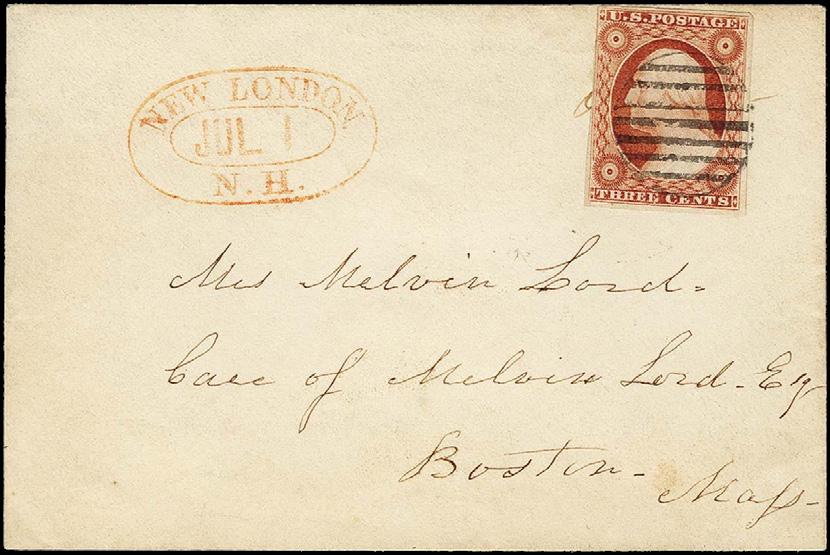 NEW LONDON
JUL 1
N. H.
U.S. POSTAGE
THREE CENTS
Mrs Melvin Lord-
Care of Melvin Lord-Esq
Boston-
Maſs-